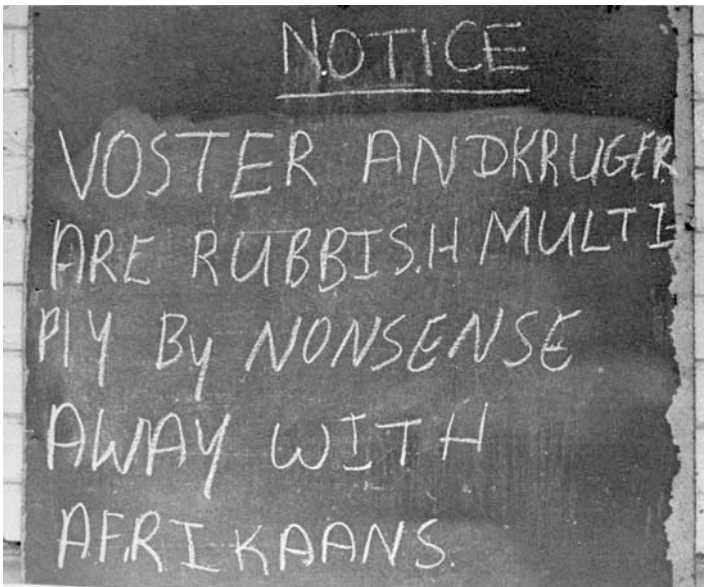 NOTICE
VOSTER ANDKRUGER
ARE RUBBISH MULTI
PLY BY NONSENSE
AWAY WITH
AFRIKAANS.